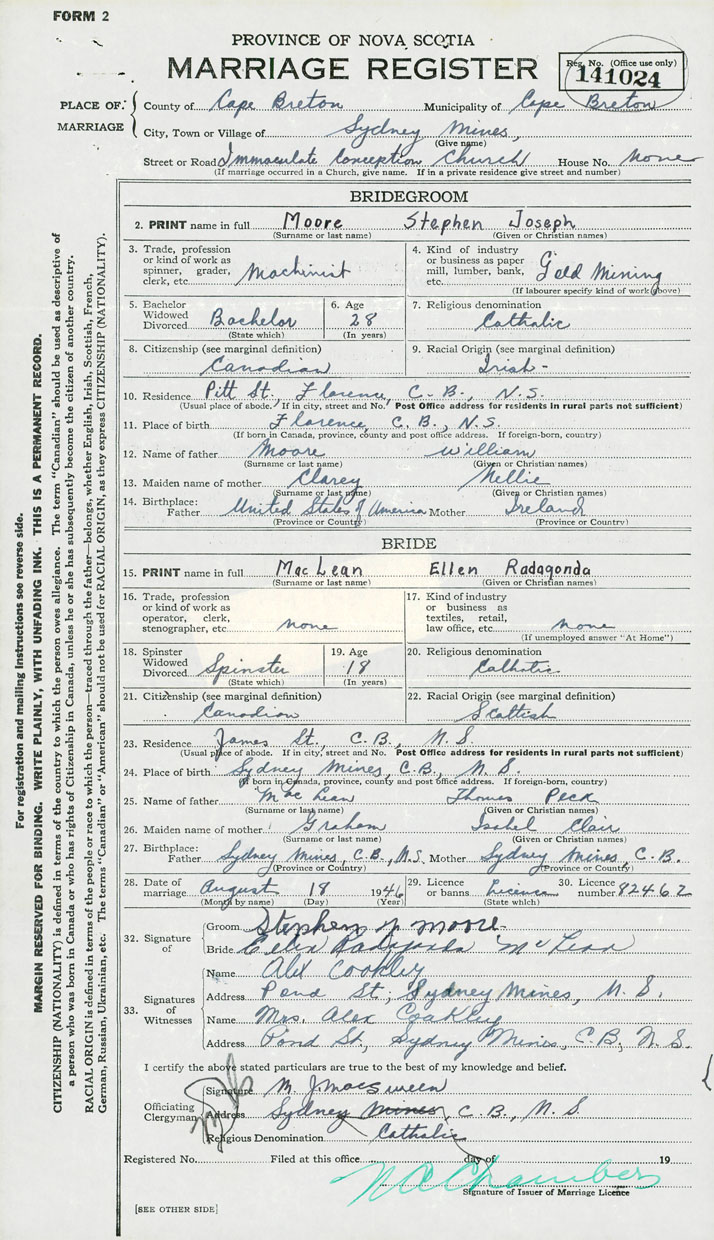 FORM 2
PROVINCE OF NOVA SCOTIA
MARRIAGE REGISTER
Reg. No. (Office use only)
141024
PLACE OF MARRIAGE
County of Cape Breton Municipality of Cape Breton
City, Town or Village of Sydney Mines,
(Give name)
Street or Road Immaculate Conception Church House No. None
(If marriage occurred in a Church, give name. If in a private residence give street and number)
BRIDEGROOM
2. PRINT name in full Moore Stephen Joseph
(Surname or last name) (Given or Christian names)
3. Trade, profession or kind of work as spinner, grader, clerk, etc. Machinist
4. Kind of industry or business as paper mill, lumber, bank, etc. Gold Mining
(If labourer specify kind of work above)
5. Bachelor Widowed Divorced Bachelor
(State which)
6. Age 28
(In years)
7. Religious denomination
Catholic
8. Citizenship (see marginal definition)
Canadian
9. Racial Origin (see marginal definition)
Irish-
10. Residence Pitt St., Florence, C. B., N.S.
(Usual place of abode. If in city, street and No. Post Office address for residents in rural parts not sufficient)
11. Place of birth Florence, C. B., N.S.
(If born in Canada, province, county and post office address. If foreign-born, country)
12. Name of father Moore William
(Surname or last name) (Given or Christian names)
13. Maiden name of mother Clarey Nellie
(Surname or last name) (Given or Christian names)
14. Birthplace: Father United States of America Mother Ireland
(Province or Country) (Province or Country)
BRIDE
15. PRINT name in full MacLean Ellen Radagonda
(Surname or last name) (Given or Christian names)
16. Trade, profession or kind of work as operator, clerk, stenographer, etc. none
17. Kind of industry or business as textiles, retail, law office, etc. none
(If unemployed answer "At Home")
18. Spinster Widowed Divorced Spinster
(State which)
19. Age 18
(In years)
20. Religious denomination
Catholic
21. Citizenship (see marginal definition)
Canadian
22. Racial Origin (see marginal definition)
Scottish
23. Residence James St., C.B., N.S.
(Usual place of abode. If in city, street and No. Post Office address for residents in rural parts not sufficient)
24. Place of birth Sydney Mines, C.B., N.S.
(If born in Canada, province, county and post office address. If foreign-born, country)
25. Name of father MacLean Thomas Peck
(Surname or last name) (Given or Christian names)
26. Maiden name of mother Graham Isabel Clair
(Surname or last name) (Given or Christian names)
27. Birthplace: Father Sydney Mines, C.B., N.S. Mother Sydney Mines, C.B.
(Province or Country) (Province or Country)
28. Date of marriage August 18 1946
(Month by name) (Day) (Year)
29. Licence or banns Licence
(State which)
30. Licence number 82462
32. Signature of
Groom Stephen J Moore
Bride Ellen Radagonda McLean
33. Signatures of Witnesses
Name Alex Coakley
Address Pond St., Sydney Mines, N.S.
Name Mrs. Alex Coakley
Address Pond St., Sydney Mines, C.B., N.S.
I certify the above stated particulars are true to the best of my knowledge and belief.
Officiating Clergyman
Signature M. J. MacSween
Address Sydney Mines, C.B., N.S.
Religious Denomination Catholic
Registered No. Filed at this office day of 19
Signature of Issuer of Marriage Licence
[SEE OTHER SIDE]
For registration and mailing instructions see reverse side.
MARGIN RESERVED FOR BINDING. WRITE PLAINLY, WITH UNFADING INK. THIS IS A PERMANENT RECORD.
CITIZENSHIP (NATIONALITY) is defined in terms of the country to which the person owes allegiance. The term "Canadian" should be used as descriptive of
a person who was born in Canada or who has rights of Citizenship in Canada, unless he or she has subsequently become the citizen of another country.
RACIAL ORIGIN is defined in terms of the people or race to which the person—traced through the father—belongs, whether English, Irish, Scottish, French,
German, Russian, Ukrainian, etc. The terms "Canadian" or "American" should not be used for RACIAL ORIGIN, as they express CITIZENSHIP (NATIONALITY).